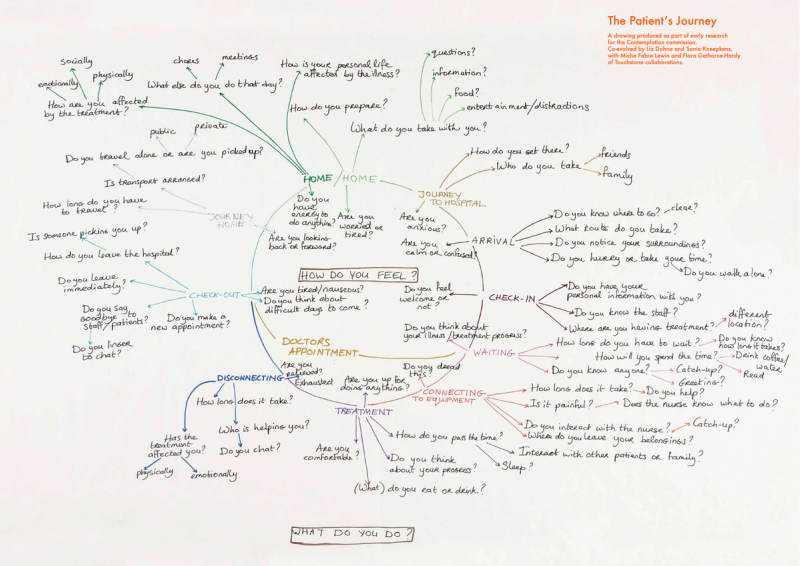 The Patient's Journey
A drawing produced as part of early research
for the Contemplation commission.
Co-evolved by Liz Dahna and Sonia Kneepkens,
with Micha Fabre Lewin and Flora Gathorne-Hardy
of Touchstone collaborations.
socially
physically
emotionally
How are you affected
by the treatment?
chores
meetings
What else do you do that day?
How is your personal life
affected by the illness?
How do you prepare?
questions?
information?
food?
entertainment/distractions
What do you take with you?
public
private
Do you travel alone or are you picked up?
Is transport arranged?
How long do you have
to travel?
JOURNEY
HOME
HOME
HOME
Do you
have
energy to
do anything?
Are you
worried or
tired?
Are you looking
back or forward?
How do you get there?
Who do you take
friends
family
JOURNEY
TO HOSPITAL
Are you
anxious?
Are you
calm or confused?
ARRIVAL
Do you know where to go?
clear?
What route do you take?
Do you notice your surroundings?
Do you hurry or take your time?
Do you walk alone?
Is someone picking you up?
How do you leave the hospital?
Do you leave
immediately?
CHECK-OUT
Do you say
goodbye to
staff/patients?
Do you make a
new appointment?
Do you linger
to chat?
Are you tired/nauseous?
Do you think about
difficult days to come?
HOW DO YOU FEEL?
Do you feel
welcome or
not?
CHECK-IN
Do you have your
personal information with you?
Do you know the staff?
Where are you having treatment?
different
location?
Do you think about
your illness/treatment progress?
WAITING
How long do you have to wait?
Do you know
how long it takes?
How will you spend the time?
Drink coffee/
water
Read
Do you know anyone?
Catch-up?
Greeting?
DOCTORS
APPOINTMENT
Do you dread
this?
CONNECTING
TO EQUIPMENT
How long does it take?
Do you help?
Is it painful?
Does the nurse know what to do?
Do you interact with the nurse?
Catch-up?
Where do you leave your belongings?
Are you
relieved?
Exhausted
DISCONNECTING
How long does it take?
Who is helping you?
Do you chat?
Has the
treatment
affected you?
physically
emotionally
Are you up for
doing anything?
TREATMENT
Are you
comfortable?
How do you pass the time?
Interact with other patients or family?
Sleep?
Do you think
about your progress?
(What) do you eat or drink?
WHAT DO YOU DO?